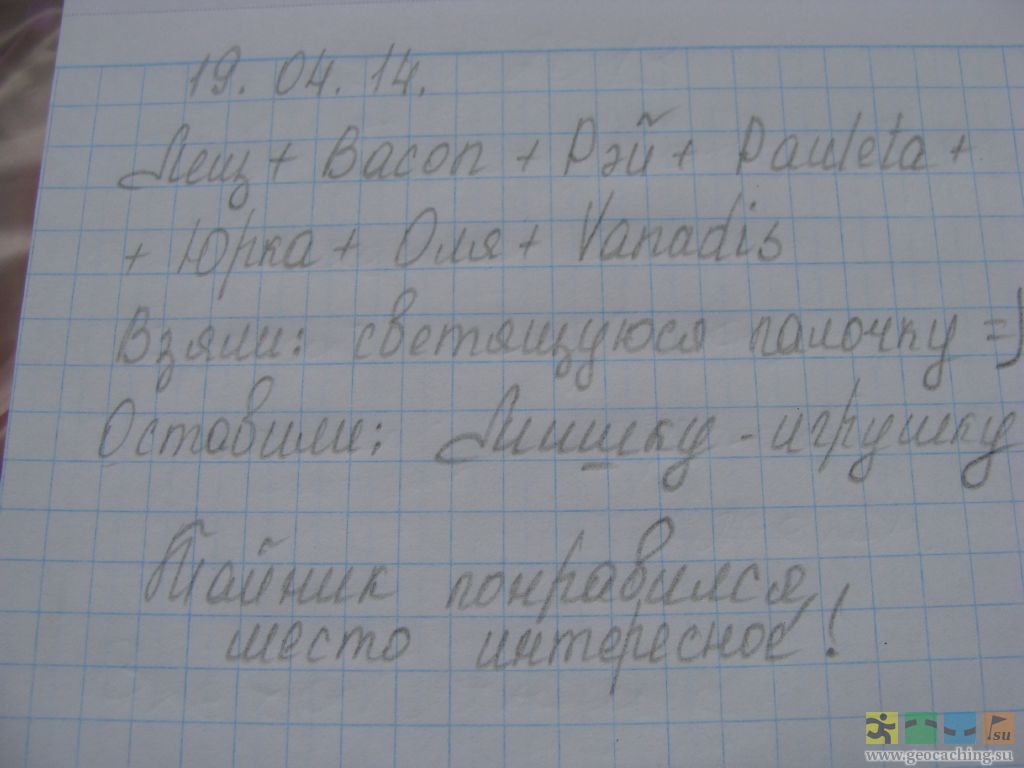 19.04.14.
Лещ + Bacon + Рэй + Pauleta +
+ Юрка + Оля + Vanadis
Взяли: светящуюся палочку =)
Оставили: Мишку - игрушку
Тайник понравился,
место интересное!
.su
www.geocaching.su